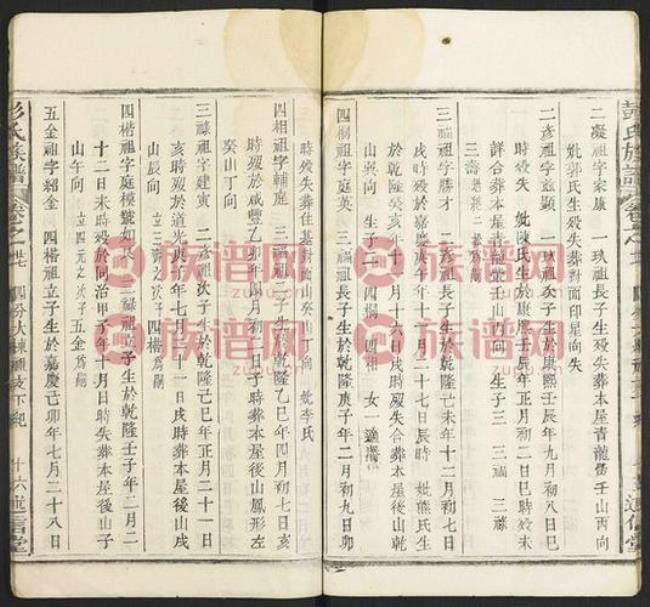 二凝祖字家康 一玖祖長子生歿失葬本屋青龍嘴壬山丙向
妣郭氏生歿失葬對面印星向失
二彥祖字茲顯 一玖祖次子生於康熙壬辰年九月初八日丑
時歿失 妣陳氏生於康熙壬辰年正月初二日巳時歿未
詳合葬本屋青龍嘴壬山丙向 生子三 三福 三祿
三壽
三福祖字勝才 二彥祖長子生於乾隆己未年十二月初七日
戌時歿於嘉慶庚午年十一月二十七日辰時 妣熊氏生
於乾隆癸亥年十一月十六日戌時歿失合葬本屋後山乾
山巽向 生子二 四桐 四相 女一適
四桐祖字庭英 三福祖長子生於乾隆庚子年二月初九日卯
時歿失葬住基對面山癸山丁向 妣李氏
四相祖字輔庭 三福祖次子生於乾隆乙巳年四月初七日亥
時歿於咸豐乙卯年四月初二日子時葬本屋後山鳳形左
癸山丁向
三祿祖字建寅 二彥祖次子生於乾隆己巳年正月二十一日
亥時歿於道光庚子年七月二十一日戌時葬本屋後山戌
山辰向 立三壽之次子四楷爲嗣
四楷祖字庭模號如泉 三祿祖立子生於乾隆壬子年二月二
十二日未時歿於同治甲子年十月日時失葬本屋後山子
山午向 立四元之次子五金爲嗣
五金祖字紹金 四楷祖立子生於嘉慶己卯年七月二十八日
彭氏族譜 卷之廿七 四分大棟祖支下紀 十六 述信堂
族谱网
www.zupu.cn